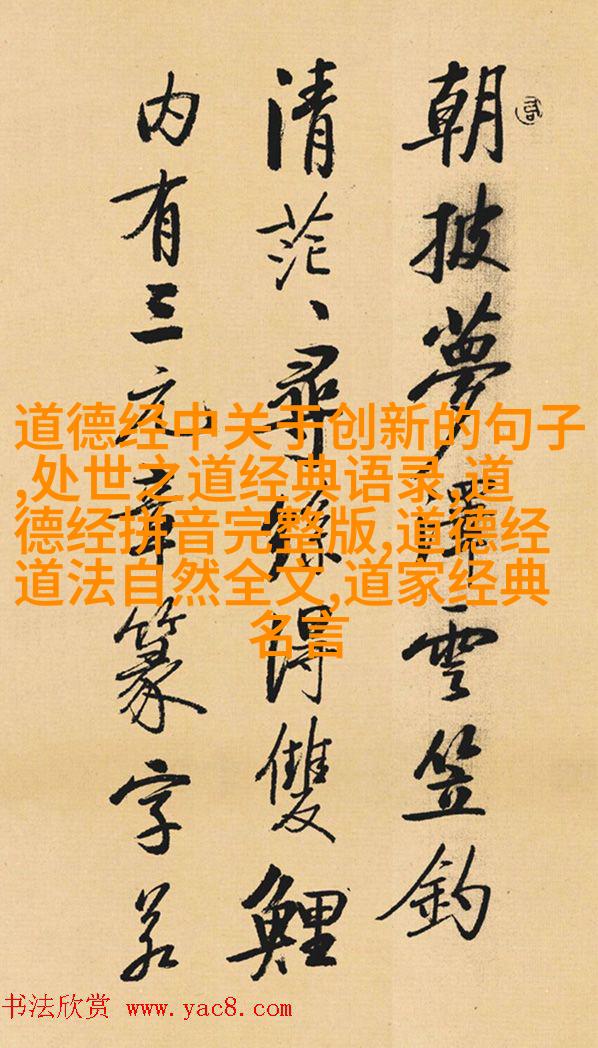 朝披夢澤雲笠釣
清茫、尋絲得雙鯉
内有三元章篆字若
道德经中关于创新的句子
,处世之道经典语录,道
德经拼音完整版,道德经
道法自然全文,道家经典
名言
书法欣赏 www.yac8.com